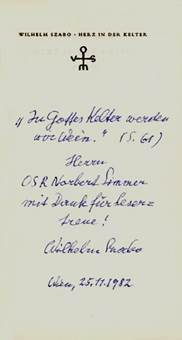 WILHELM SZABO · HERZ IN DER KELTER
V S
„In Gottes Kelter werden
wir Wein." (S. 61)
Herrn
OSR Norbert Simmer
mit Dank für Leser=
treue!
Wilhelm Szabo
Wien, 25.11.1982